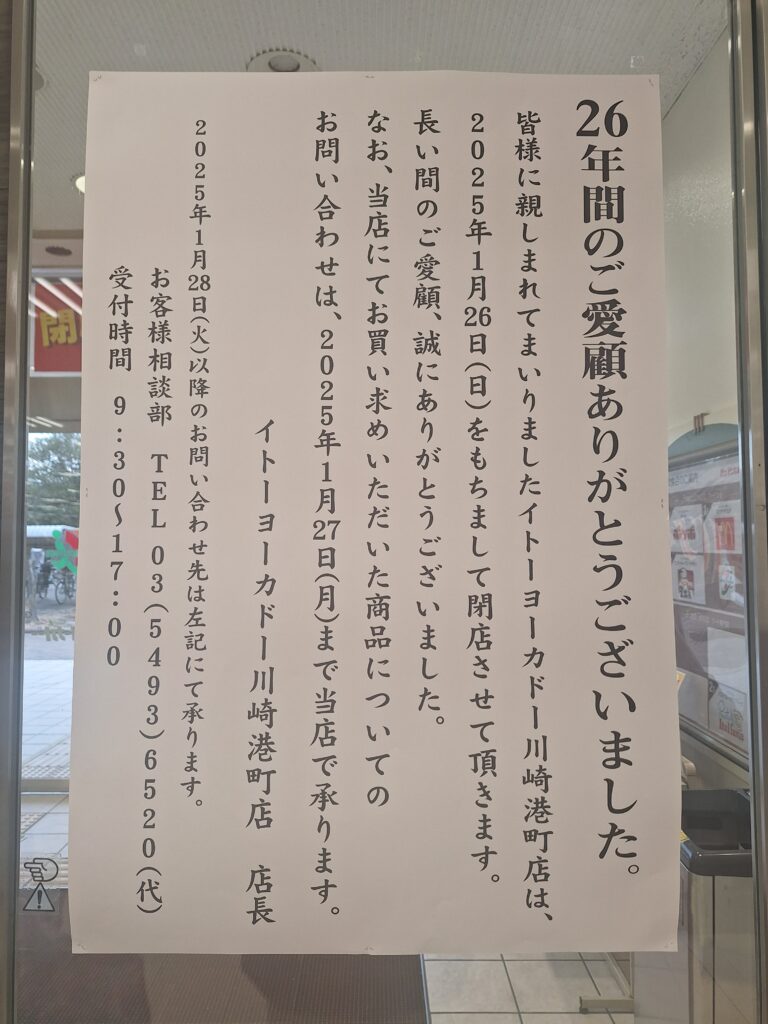 26年間のご愛顧ありがとうございました。
皆様に親しまれてまいりましたイトーヨーカドー川崎港町店は、
2025年1月26日(日)をもちまして閉店させて頂きます。
長い間のご愛顧、誠にありがとうございました。
なお、当店にてお買い求めいただいた商品についての
お問い合わせは、2025年1月27日(月)まで当店で承ります。
イトーヨーカドー川崎港町店 店長
2025年1月28日(火)以降のお問い合わせ先は左記にて承ります。
お客様相談部 TEL 03(5493)6520(代)
受付時間 9:30~17:00
閉